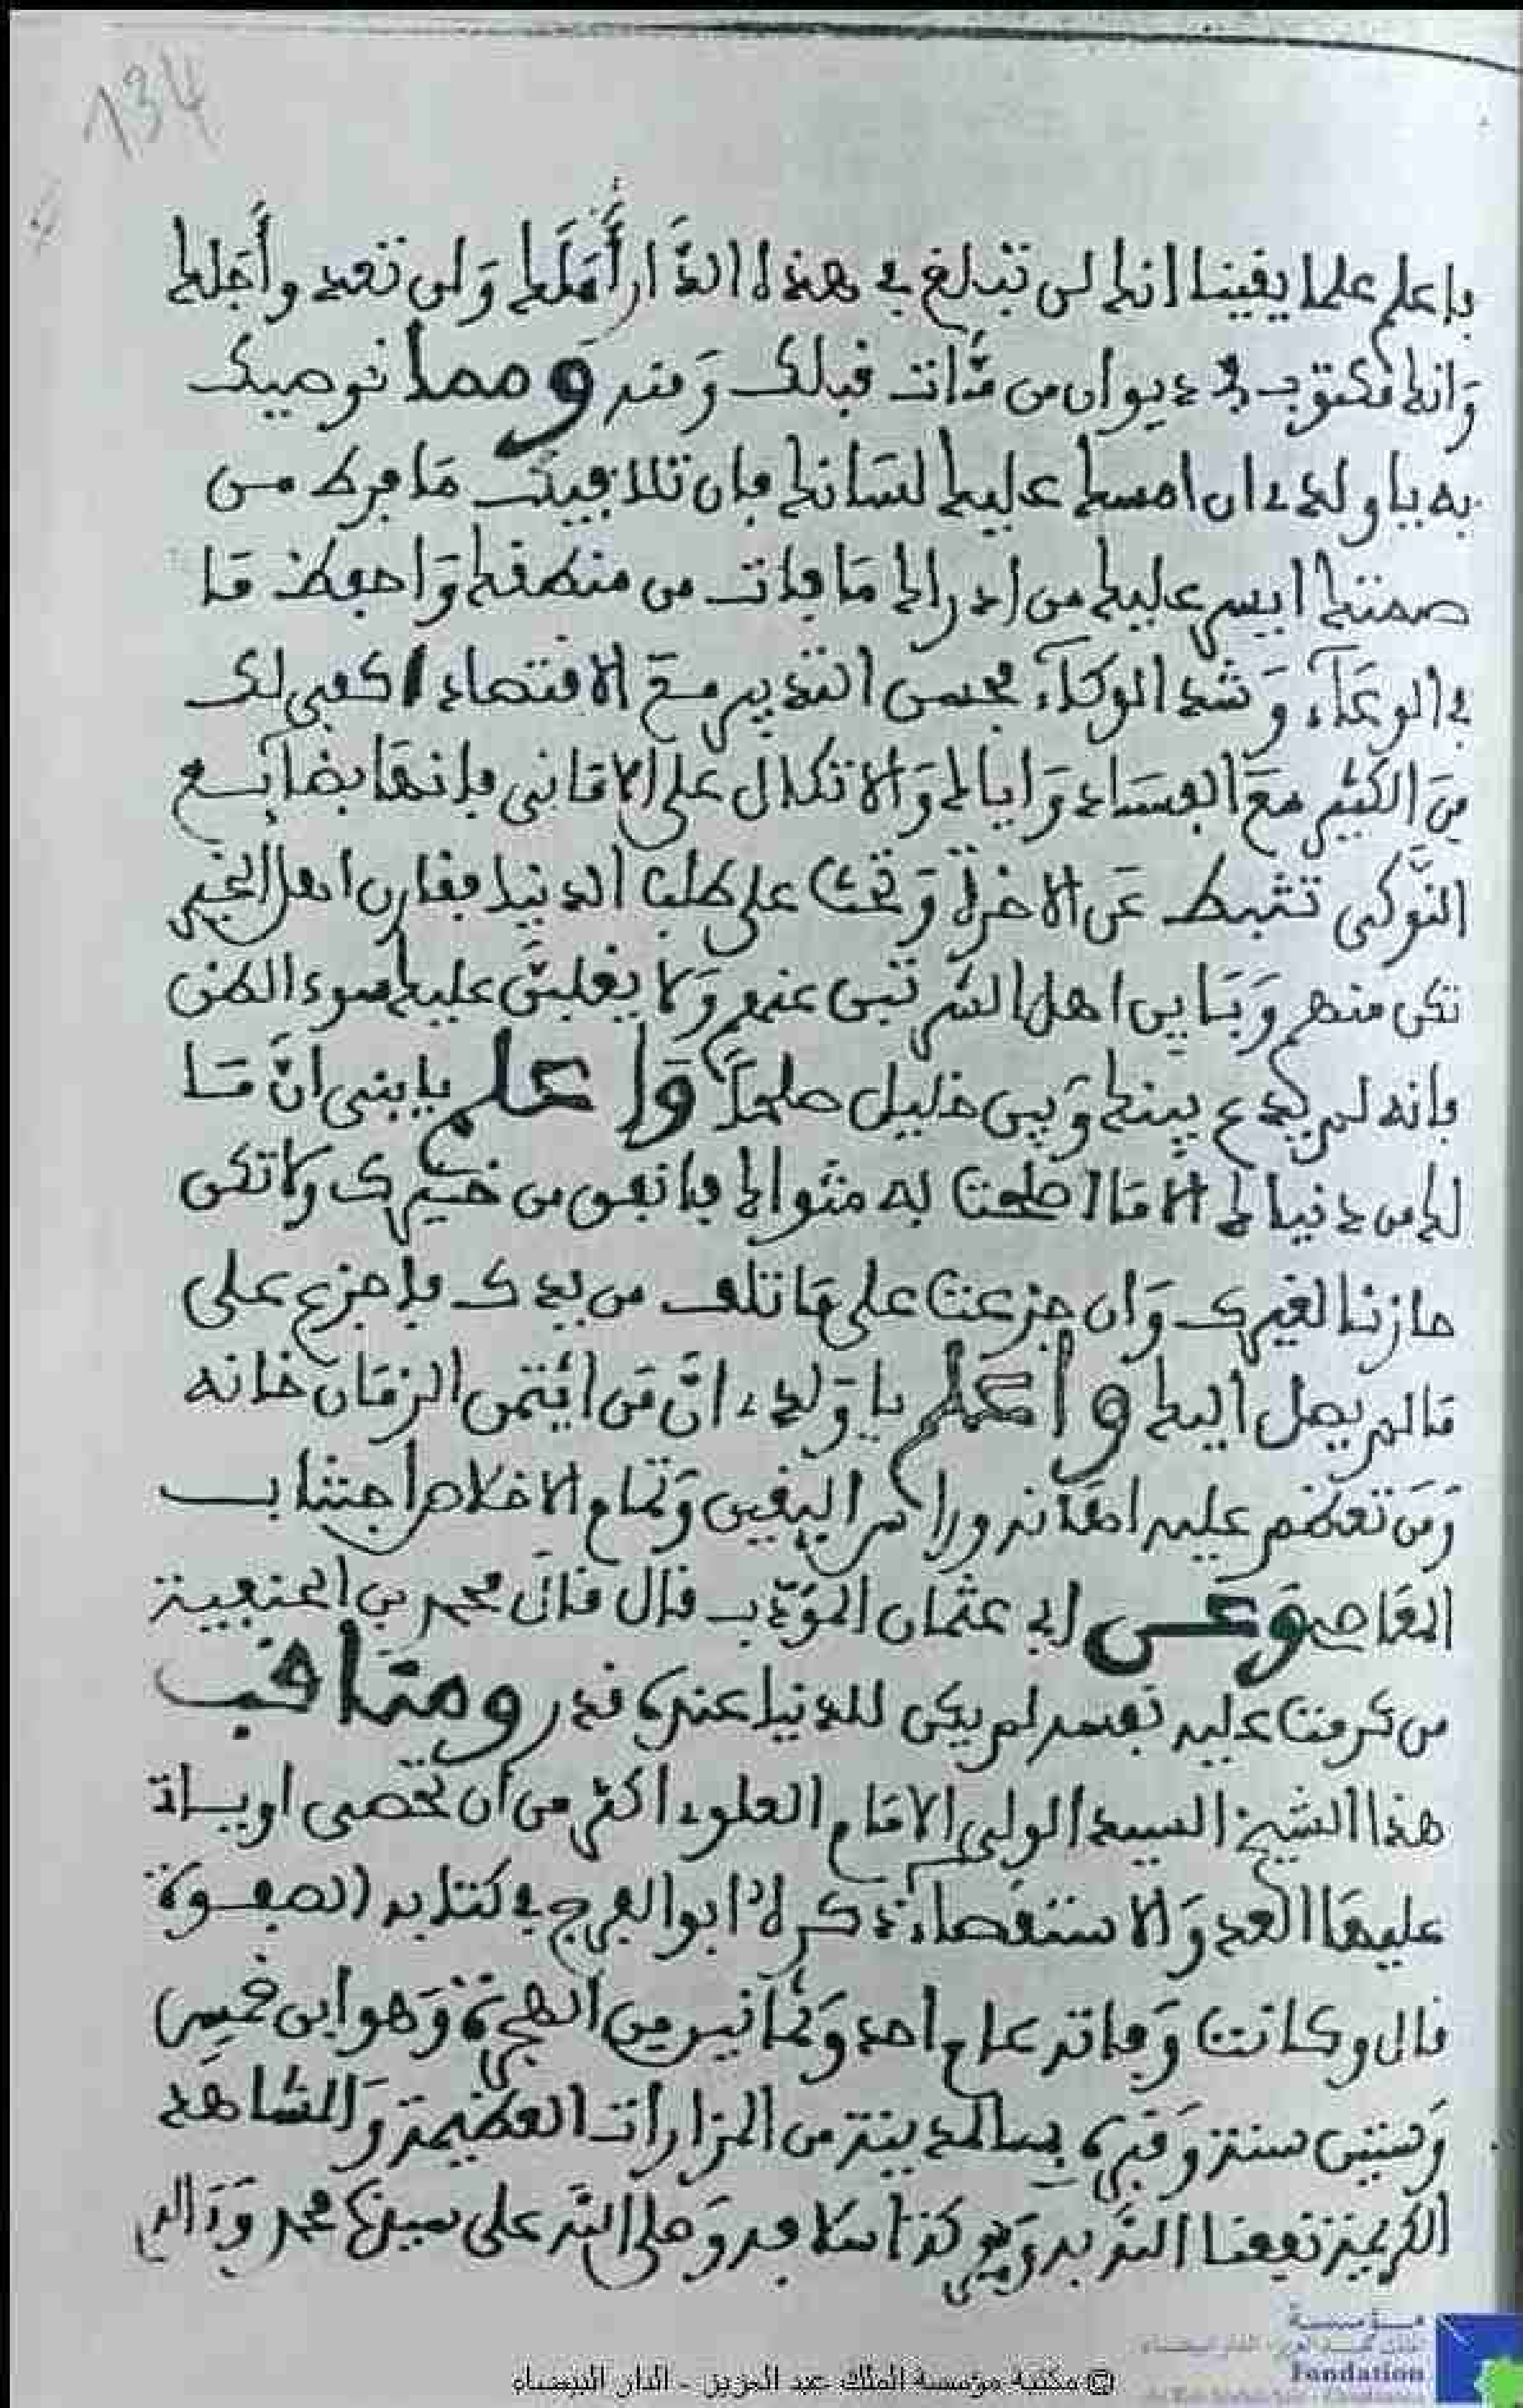 134
فاعلم علما يقينا انك لن تبلغ في هذه الدار أملك ولن تعدو أجلك
وانك مكتوب في ديوان من مات قبلك ومنه ومما نوصيك
به يا ولدي ان امسك عليك لسانك فان تلافيك ما فرط من
صمتك ايسر عليك من ادراك ما فات من منطقك واحفظ ما
في الوعآء وشد الوكآء فحسن التدبير مع الاقتصاد اكفى لك
من الكثير مع الفساد واياك والاتكال على الاماني فإنها بضائع
النوكى تثبط عن الاخرة وتحث على طلب الدنيا فقارن اهل الخير
تكن منهم وباين اهل الشر تبن عنهم ولا يغلبن عليك سوء الظن
فانه لم يدع بينك وبين خليل صلحا واعلم يا بني ان ما
لك من دنياك الا ما اصلحت به مثواك فانفق من خيرك ولا تكن
خازنا لغيرك وان جزعت على ما تلف من يدك فاجزع على
ما لم يصل اليك واعلم يا ولدي ان من ائتمن الزمان خانه
ومن تعظم عليه اهانه وراس اليقين وتمام الاخلاص اجتناب
المعاصي وعن ابي عثمان المؤدب قال قال محمد بن الحنفية
من كرمت عليه نفسه لم يكن للدنيا عنده قدر ومناقب
هذا الشيخ السيد الولي الامام العلوي اكثر من ان تحصى او ياتي
عليها العد والاستقصاء ذكره ابو الفرج في كتابه الصفوة
قال وكانت وفاته عام احد وثمانين من الهجرة وهو ابن خمس
وستين سنة وقبره بالمدينة من المزارات العظيمة والمشاهد
الكريمة نفعنا الله به وبـ كذا اسلافه وصلى الله على سيدنا محمد وءاله
مؤسسة
الملك عبد العزيز الدار البيضاء
Fondation
© مكتبة مؤسسة الملك عبد العزيز - الدار البيضاء